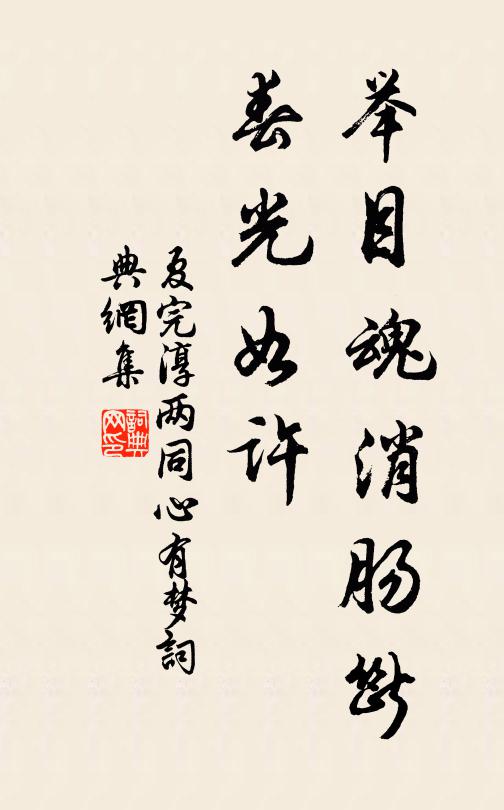 举目魂消肠断
春光如许
夏完淳两同心有梦詞
典網集
詞典
网印